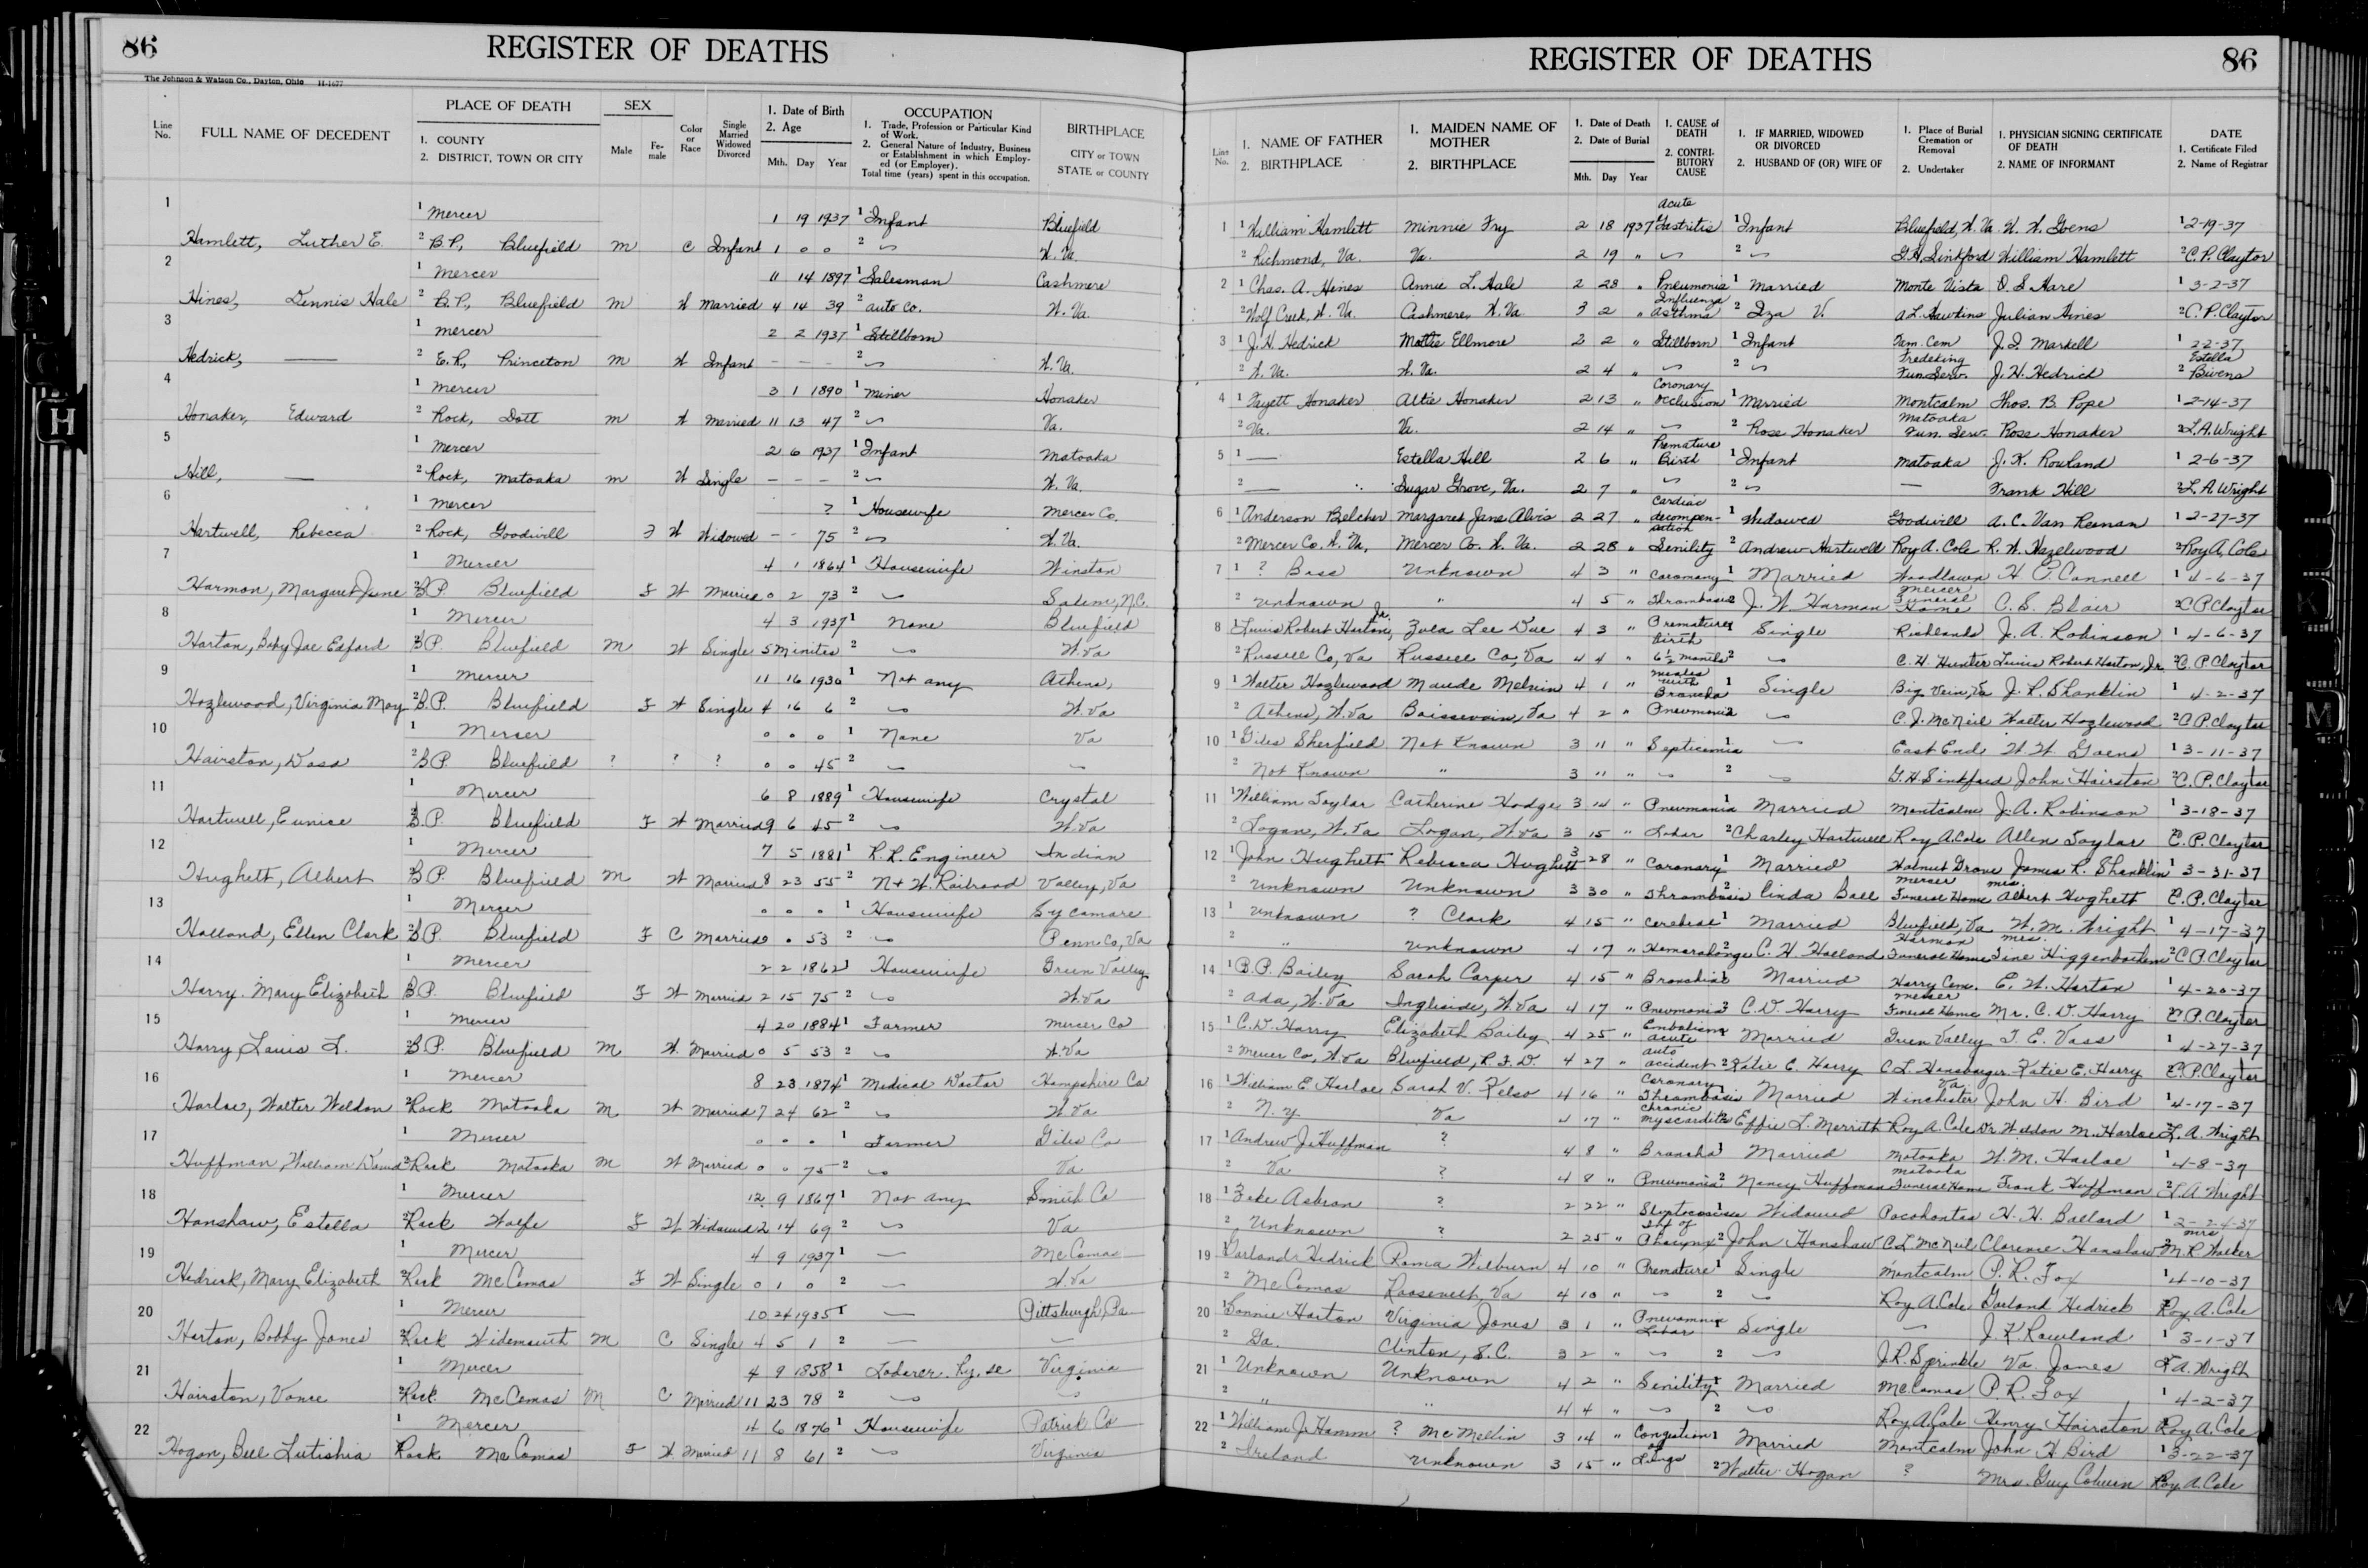 86 REGISTER OF DEATHS
The Johnson & Watson Co., Dayton, Ohio H-1677
Line No. FULL NAME OF DECEDENT PLACE OF DEATH 1. COUNTY 2. DISTRICT, TOWN OR CITY SEX Male Fe-male Color or Race Single Married Widowed Divorced 1. Date of Birth 2. Age Mth. Day Year OCCUPATION 1. Trade, Profession or Particular Kind of Work. 2. General Nature of Industry, Business or Establishment in which Employ-ed (or Employer). Total time (years) spent in this occupation. BIRTHPLACE CITY or TOWN STATE or COUNTY
1 1 Mercer 1 19 1937 1 Infant Bluefield
Hamlett, Luther E. 2 B.P., Bluefield M C Infant 1 0 0 2 W. Va.
2 1 Mercer 11 14 1897 1 Salesman Cashmere
Hines, Dennis Hale 2 B.P., Bluefield M W Married 4 14 39 2 auto co. W. Va.
3 1 Mercer 2 2 1937 1 Stillborn
Hedrick, — 2 E.R., Princeton M W Infant - - - 2 W. Va.
4 1 Mercer 3 1 1890 1 Miner Honaker
Honaker, Edward 2 Rock, Dott M W Married 11 13 47 2 Va.
5 1 Mercer 2 6 1937 1 Infant Matoaka
Hill, — 2 Rock, Matoaka M W Single - - - 2 W. Va.
6 1 Mercer ? 1 Housewife Mercer Co.
Hartwell, Rebecca 2 Rock, Goodwill F W Widowed - - 75 2 W. Va.
7 1 Mercer 4 1 1864 1 Housewife Winston
Harmon, Margaret Jane 2 B.P. Bluefield F W Married 0 2 73 2 Salem, N.C.
8 1 Mercer 4 3 1937 1 None Bluefield
Horton, Baby Joe Edford 2 B.P. Bluefield M W Single 5 Minites 2 W. Va
9 1 Mercer 11 16 1930 1 Not any Athens,
Hozlewood, Virginia May 2 B.P. Bluefield F W Single 4 16 6 2 W. Va
10 1 Mercer 0 0 0 1 None Va
Hairston, Dosa 2 B.P. Bluefield ? ? ? 0 0 45 2
11 1 Mercer 6 8 1889 1 Housewife Crystal
Hartwell, Eunice 2 B.P. Bluefield F W Married 9 6 45 2 W. Va
12 1 Mercer 7 5 1881 1 R.R. Engineer Indian
Hughett, Albert 2 B.P. Bluefield M W Married 8 23 55 2 N & W. Railroad Valley, Va
13 1 Mercer 0 0 0 1 Housewife Sycamore
Holland, Ellen Clark 2 B.P. Bluefield F C Married 0 0 53 2 Penn. Co, Va
14 1 Mercer 2 2 1862 1 Housewife Green Valley
Harry, Mary Elizabeth B.P. Bluefield F W Married 2 15 75 2 W. Va
15 1 Mercer 4 20 1884 1 Farmer Mercer Co
Harry, Louis L. 2 B.P. Bluefield M W. Married 0 5 53 2 W. Va
16 1 Mercer 8 23 1874 1 Medical Doctor Hampshire Co
Harloe, Walter Weldon 2 Rock Matoaka M W Married 7 24 62 2 W Va
17 1 Mercer 0 0 0 1 Farmer Giles Co
Huffman, William David 2 Rock Matoaka M W Married 0 0 75 2 Va
18 1 Mercer 12 9 1867 1 Not any Smith Co
Hanshaw, Estella 2 Rock Wolfe F W Widowed 2 14 69 2 Va
19 1 Mercer 4 9 1937 1 — McComas
Hedrick, Mary Elizabeth 2 Rock McComas F W Single 0 1 0 2 — W. Va
20 1 Mercer 10 24 1935 1 — Pittsburgh, Pa
Horton, Bobby Jones 2 Rock Widemouth M C Single 4 5 1 2 —
21 1 Mercer 4 9 1858 1 Laborer. Ry. se Virginia
Hairston, Vance 2 Rock McComas M C Married 11 23 78 2
22 1 Mercer 4 6 1876 1 Housewife Patrick Co
Hogan, Bell Lutishia Rock McComas F W. Married 11 8 61 2 Virginia
REGISTER OF DEATHS 86
Line No. 1. NAME OF FATHER 2. BIRTHPLACE 1. MAIDEN NAME OF MOTHER 2. BIRTHPLACE 1. Date of Death 2. Date of Burial Mth. Day Year 1. CAUSE of DEATH 2. CONTRI-BUTORY CAUSE 1. IF MARRIED, WIDOWED OR DIVORCED 2. HUSBAND OF (OR) WIFE OF 1. Place of Burial Cremation or Removal 2. Undertaker 1. PHYSICIAN SIGNING CERTIFICATE OF DEATH 2. NAME OF INFORMANT DATE 1. Certificate Filed 2. Name of Registrar
1 1 William Hamlett Minnie Fry 2 18 1937 Acute Gastritis 1 Infant Bluefield, W. Va. W. W. Goens 1 2-19-37
2 Richmond, Va. Va. 2 19 " 2 G.H. Sinkford William Hamlett 2 C. P. Claytor
2 1 Chas. A. Hines Annie L. Hale 2 28 " Pneumonia 1 Married Monte Vista O. S. Hare 1 3-2-37
2 Wolf Creek, W. Va. Cashmere, W. Va. 3 2 " Influenza Asthma 2 Iza V. A L. Hawkins Julian Hines 2 C. P. Claytor
3 1 J. H Hedrick Mattie Ellmore 2 2 " Stillborn 1 Infant Fam. Cem J. I. Markell 1 2-2-37
2 W. Va. W. Va. 2 4 " 2 Fredeking Fun. Serv. J. H. Hedrick 2 Estella Bivens
4 1 Fayett Honaker Altie Honaker 2 13 " Coronary Occlusion 1 Married Montcalm Thos. B. Pope 1 2-14-37
2 Va. Va. 2 14 " 2 Rose Honaker Matoaka Fun. Serv. Rose Honaker 2 L.A. Wright
5 1 — Estella Hill 2 6 " Premature Birth 1 Infant Matoaka J. K. Rowland 1 2-6-37
2 — Sugar Grove, Va. 2 7 " 2 — Frank Hill 2 L. A. Wright
6 1 Anderson Belcher Margaret Jane Alvis 2 27 " Cardiac decompen-sation 1 Widowed Goodwill A. C. Van Reenan 1 2-27-37
2 Mercer Co. W. Va, Mercer Co. W. Va. 2 28 " Senility 2 Andrew Hartwell Roy A. Cole R. W. Hazelwood 2 Roy A. Cole
7 1 ? Bass Unknown 4 3 " Coronary 1 Married Woodlawn H. O. Connell 1 4-6-37
2 Unknown " 4 5 " Thrombasis 2 J. W. Harman Mercer Funeral Home C. S. Blair 2 C P Claytor
8 1 Louis Robert Horton, Jr. Zula Lee Dye 4 3 " Premature birth 1 Single Richlands J. A. Robinson 1 4-6-37
2 Russell Co, Va Russell Co, Va 4 4 " 6½ months 2 C. H. Hunter Louis Robert Horton, Jr. 2 C. P. Claytor
9 1 Walter Hozlewood Maude Melvin 4 1 " Measles with Broncho 1 Single Big Vein, Va J. R. Shanklin 1 4-2-37
2 Athens, W. Va Boissevain, Va 4 2 " Pneumonia 2 C. J. McNeil Walter Hozlewood 2 C. P. Claytor
10 1 Giles Sherfield Not Known 3 11 " Septicemia 1 East End W. W. Goens 1 3-11-37
2 Not Known " 3 11 " 2 G. H. Sinkford John Hairston 2 C. P. Claytor
11 1 William Taylor Catherine Hodge 3 14 " Pneumonia 1 Married Montcalm J. A. Robinson 1 3-18-37
2 Logan, W. Va Logan, W. Va 3 15 " Lobar 2 Charley Hartwell Roy A. Cole Allen Taylor C. P. Claytor
12 1 John Hughett Rebecca Hughett 3 28 " Coronary 1 Married Walnut Grove James R. Shanklin 1 3-31-37
2 Unknown Unknown 3 30 " Thrombasis 2 Linda Ball Mercer Funeral Home Mrs. Albert Hughett C. P. Claytor
13 1 Unknown ? Clark 4 15 " Cerebral 1 Married Bluefield, Va W. M. Wright 1 4-17-37
2 " Unknown 4 17 " 2 C. H. Holland Harmon Funeral Home Mrs. Tine Higgenbotham 2 C P. Claytor
14 1 B. P. Bailey Sarah Carper 4 15 " Bronchial 1 Married Harry Cem. E. W. Horton 1 4-20-37
2 Ada, W. Va Ingleside, W. Va 4 17 " Pneumonia 2 C. D. Harry Mercer Funeral Home Mr. C. D. Harry C. P. Claytor
15 1 C. D. Harry Elizabeth Bailey 4 25 " Embolism acute 1 Married Green Valley T. E. Vass 1 4-27-37
2 Mercer Co, W. Va Bluefield, R. F. D. 4 27 " auto accident 2 Katie E. Harry C L Hansbarger Katie E. Harry C. P. Claytor
16 1 William E. Harloe Sarah V. Kelso 4 16 " Coronary Thrombasis 1 Married Winchester Va John H. Bird 1 4-17-37
2 N. Y. Va 4 17 " Chronic Myocarditis 2 Effie L. Merrith Roy A. Cole Dr Weldon M. Harloe 2 L. A. Wright
17 1 Andrew J. Huffman ? 4 8 " Broncho 1 Married Matoaka W. M. Harloe 1 4-8-37
2 Va ? 4 8 " Pneumonia 2 Nancy Huffman Matoaka Funeral Home Frank Huffman 2 L A Wright
18 1 Zeke Asbron ? 2 22 " 1 Widowed Pocohontas H. H. Ballard 1 2-24-37
2 Unknown ? 2 25 " Inf of Pharynx 2 John Hanshaw C L McNeil Clarence Hanshaw 2 Mrs M R Walker
19 1 Garland Hedrick Roma Wilburn 4 10 " Premature 1 Single Montcalm P. R. Fox 1 4-10-37
2 McComas Roosevelt, Va 4 10 " 2 Roy A. Cole Garland Hedrick Roy A. Cole
20 1 Lonnie Horton Virginia Jones 3 1 " Pneumonia Lobar 1 Single J. K Rowland 1 3-1-37
2 Ga. Clinton, S.C. 3 2 " 2 J. R. Sprinkle Va. Jones L. A. Wright
21 1 Unknown Unknown 4 2 " Senility 1 Married McComas P. R. Fox 1 4-2-37
2 " " 4 4 " 2 Roy A. Cole Henry Hairston Roy A. Cole
22 1 William J. Hamm ? McMellin 3 14 " Congestion of 1 Married Montcalm John H Bird 1 3-22-37
2 Ireland Unknown 3 15 " Lungs 2 Walter Hogan ? Mrs. Guy Coburn Roy A. Cole
H
K
M